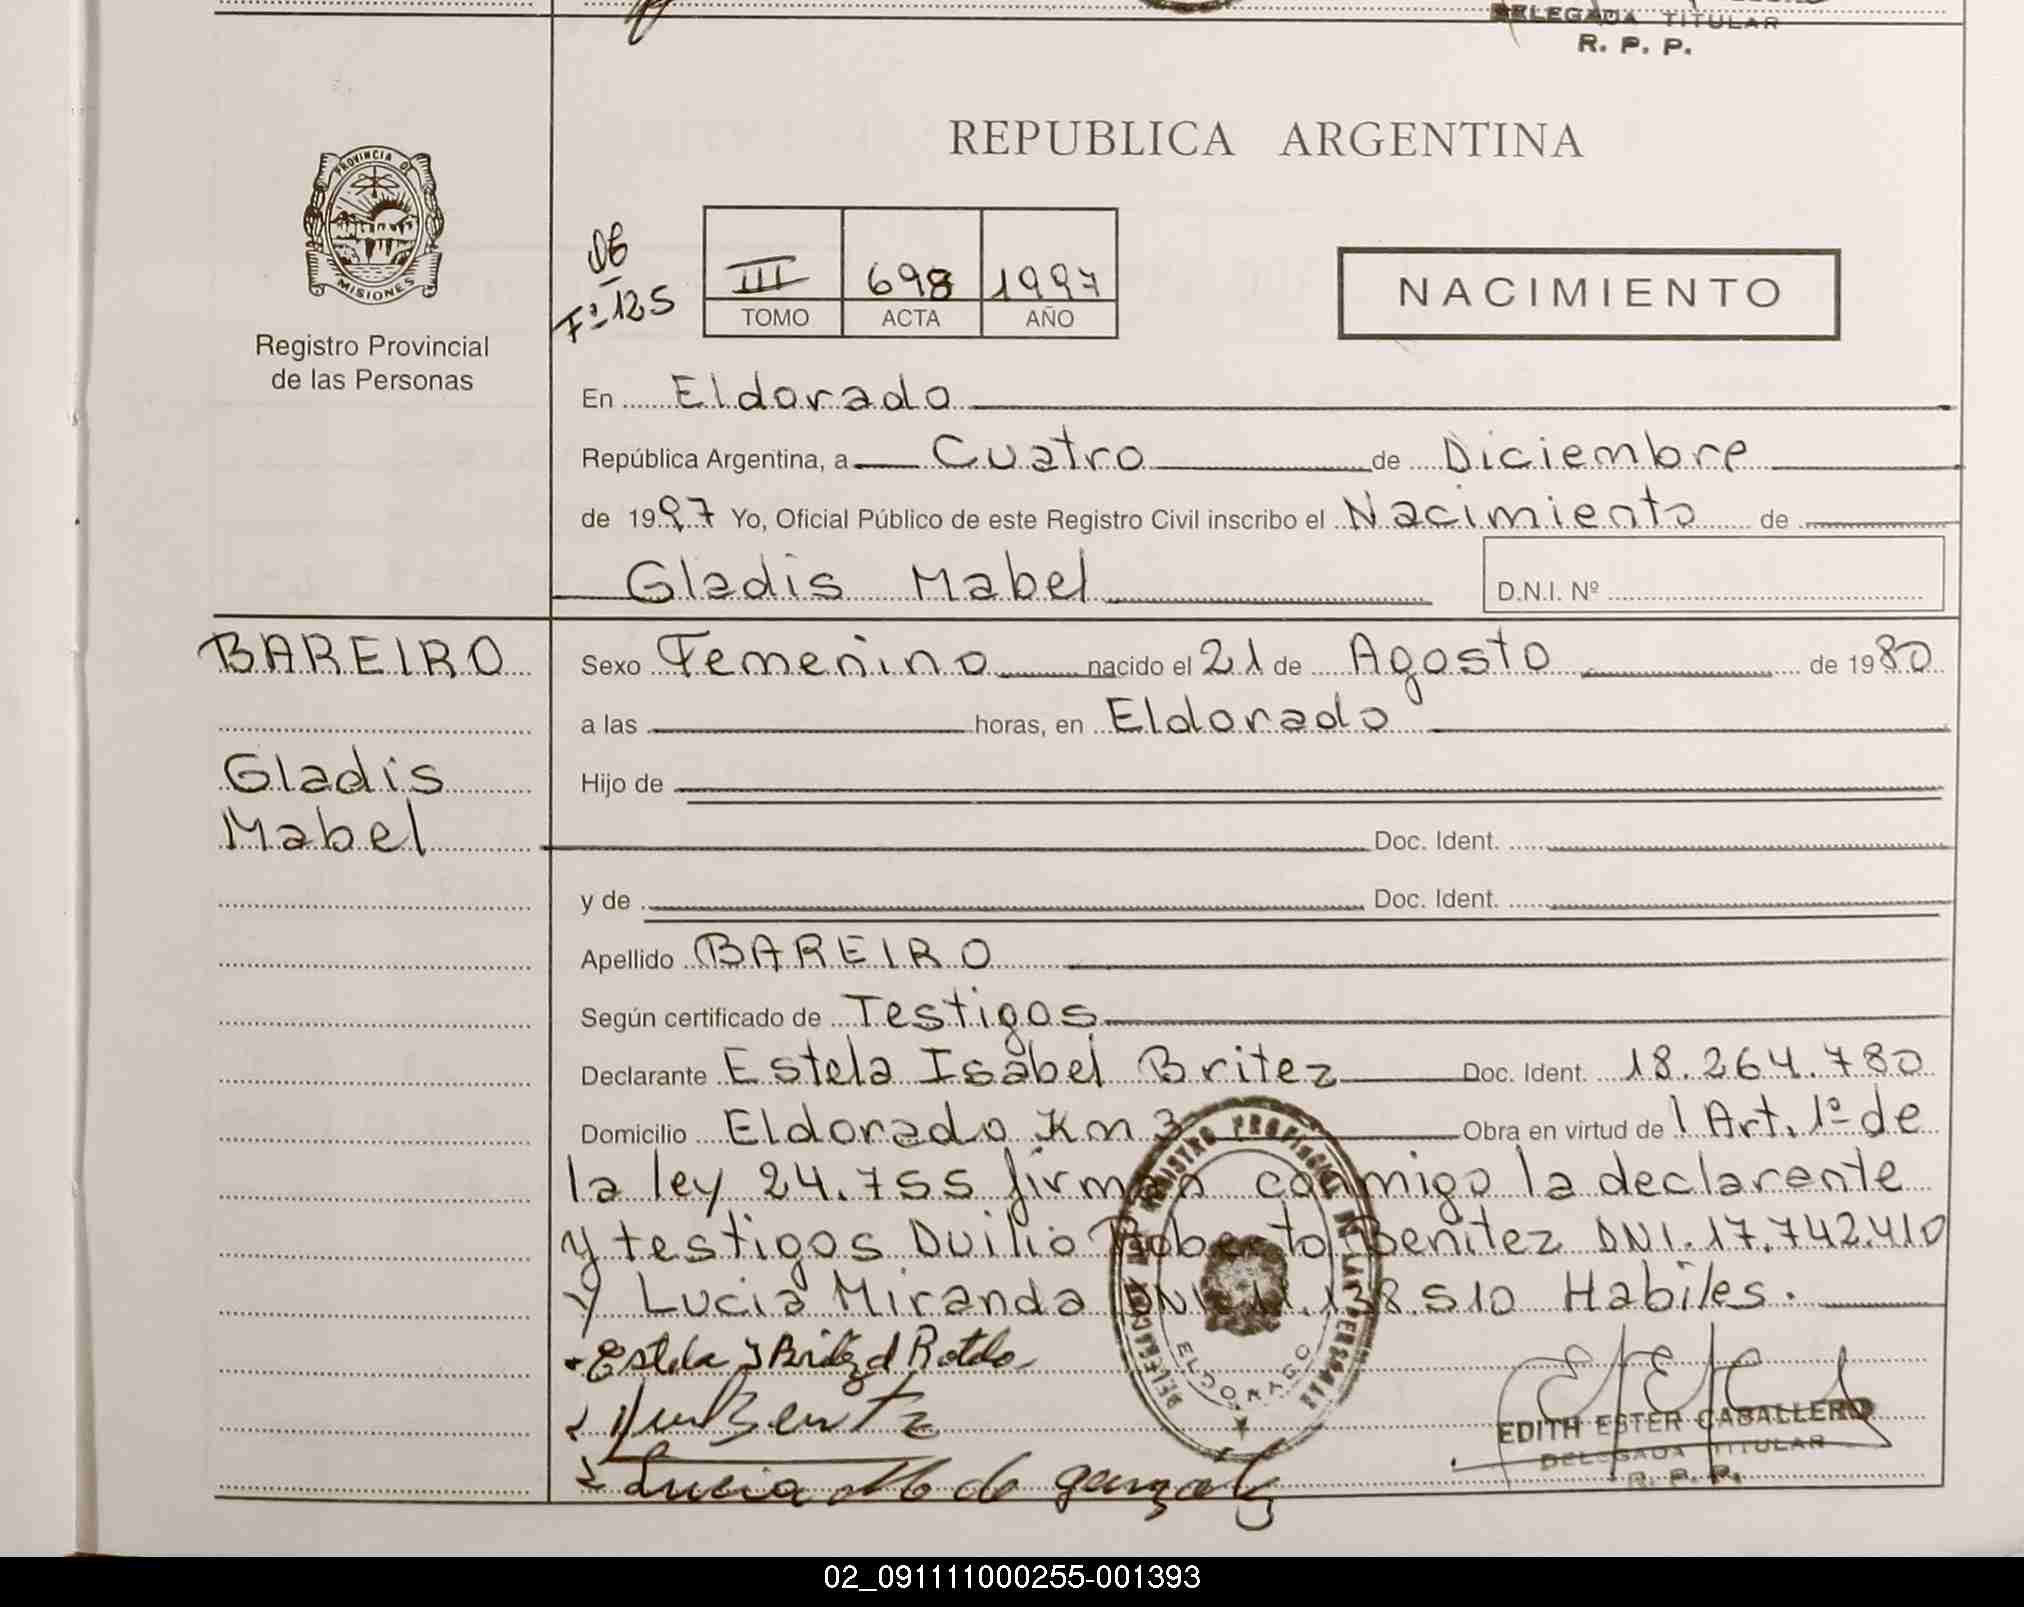 DELEGADA TITULAR
R. P. P.
PROVINCIA DE
MISIONES
Registro Provincial
de las Personas
REPUBLICA ARGENTINA
Fº 125
III 698 1997
TOMO ACTA AÑO
NACIMIENTO
En Eldorado
República Argentina, a Cuatro de Diciembre
de 1997 Yo, Oficial Público de este Registro Civil inscribo el Nacimiento de
Gladis Mabel D.N.I. Nº
BAREIRO
Gladis
Mabel
Sexo Femenino nacido el 21 de Agosto de 1980
a las horas, en Eldorado
Hijo de
Doc. Ident.
y de Doc. Ident.
Apellido BAREIRO
Según certificado de Testigos
Declarante Estela Isabel Britez Doc. Ident. 18.264.780
Domicilio Eldorado Km 3 Obra en virtud de l Art. 1º de
la ley 24.755 firman conmigo la declarante
y testigos Duilio Roberto Benitez DNI. 17.742.410
y Lucia Miranda DNI 138.510 Habiles.
Estela I Britez d
Benitz
Lucia M de
ELDORADO
EDITH ESTER CABALLERO
DELEGADA TITULAR
R. P. P.
02_091111000255-001393